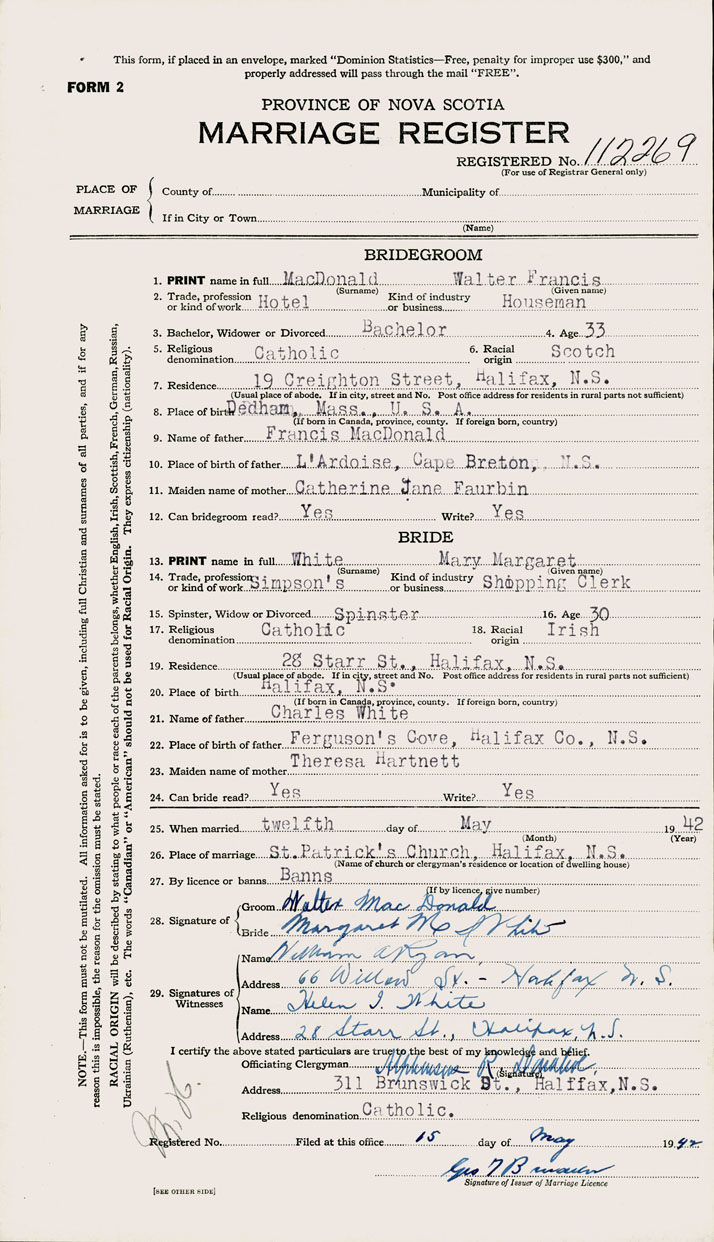 This form, if placed in an envelope, marked "Dominion Statistics—Free, penalty for improper use $300," and
properly addressed will pass through the mail "FREE".
FORM 2
PROVINCE OF NOVA SCOTIA
MARRIAGE REGISTER
REGISTERED No. 112269
(For use of Registrar General only)
PLACE OF MARRIAGE
County of Municipality of
If in City or Town
(Name)
BRIDEGROOM
1. PRINT name in full MacDonald Walter Francis
(Surname) (Given name)
2. Trade, profession or kind of work Hotel Kind of industry or business Houseman
3. Bachelor, Widower or Divorced Bachelor 4. Age 33
5. Religious denomination Catholic 6. Racial origin Scotch
7. Residence 19 Creighton Street, Halifax, N.S.
(Usual place of abode. If in city, street and No. Post office address for residents in rural parts not sufficient)
8. Place of birth Dedham, Mass., U. S. A.
(If born in Canada, province, county. If foreign born, country)
9. Name of father Francis MacDonald
10. Place of birth of father L'Ardoise, Cape Breton, N.S.
11. Maiden name of mother Catherine Jane Faurbin
12. Can bridegroom read? Yes Write? Yes
BRIDE
13. PRINT name in full White Mary Margaret
(Surname) (Given name)
14. Trade, profession or kind of work Simpson's Kind of industry or business Shopping Clerk
15. Spinster, Widow or Divorced Spinster 16. Age 30
17. Religious denomination Catholic 18. Racial origin Irish
19. Residence 28 Starr St., Halifax, N.S.
(Usual place of abode. If in city, street and No. Post office address for residents in rural parts not sufficient)
20. Place of birth Halifax, N.S.
(If born in Canada, province, county. If foreign born, country)
21. Name of father Charles White
22. Place of birth of father Ferguson's Cove, Halifax Co., N.S.
23. Maiden name of mother Theresa Hartnett
24. Can bride read? Yes Write? Yes
25. When married twelfth day of May 1942
(Month) (Year)
26. Place of marriage St.Patrick's Church, Halifax, N.S.
(Name of church or clergyman's residence or location of dwelling house)
27. By licence or banns Banns
(If by licence, give number)
28. Signature of
Groom Walter Mac Donald
Bride Margaret M White
29. Signatures of Witnesses
Name William A Ryan
Address 66 Willow St. - Halifax N. S.
Name Helen I. White
Address 28 Starr St., Halifax, N.S.
I certify the above stated particulars are true to the best of my knowledge and belief.
Officiating Clergyman Alphonsus R.
(Signature)
Address 311 Brunswick St., Halffax,N.S.
Religious denomination Catholic.
Registered No. Filed at this office 15 day of May 1942
Geo
Signature of Issuer of Marriage Licence
[SEE OTHER SIDE]
NOTE.—This form must not be mutilated. All information asked for is to be given, including full Christian and surnames of all parties, and if for any
reason this is impossible, the reason for the omission must be stated.
RACIAL ORIGIN will be described by stating to what people or race each of the parents belongs, whether English, Irish, Scottish, French, German, Russian,
Ukrainian (Ruthenian), etc. The words "Canadian" or "American" should not be used for Racial Origin. They express citizenship (nationality).